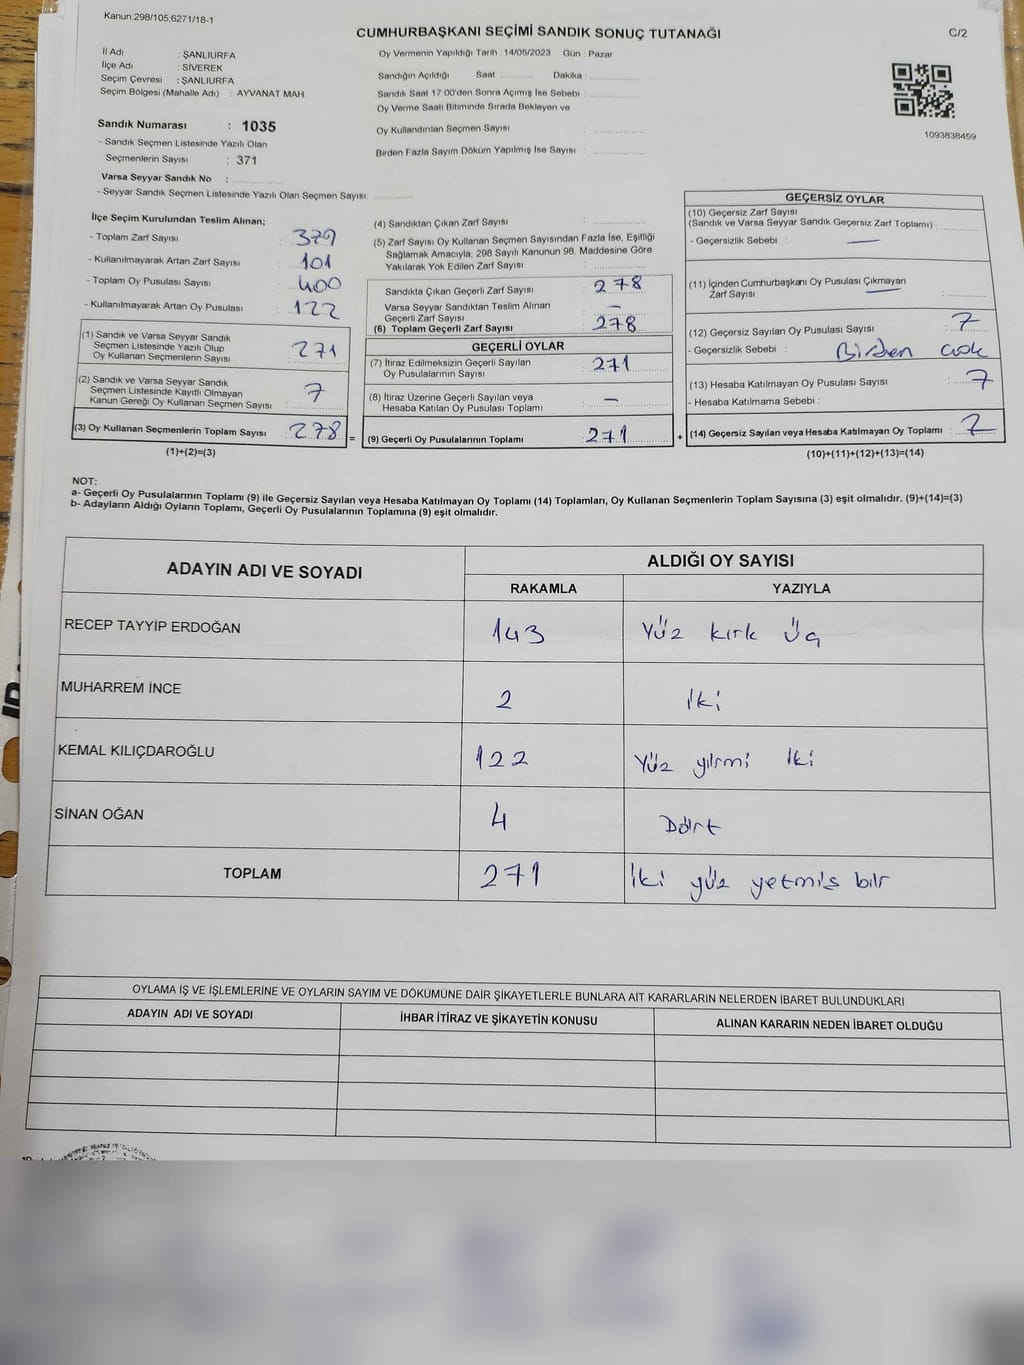 Kanun:298/105;6271/18-1
CUMHURBAŞKANI SEÇİMİ SANDIK SONUÇ TUTANAĞI
C/2
İl Adı : ŞANLIURFA
İlçe Adı : SİVEREK
Seçim Çevresi : ŞANLIURFA
Seçim Bölgesi (Mahalle Adı) : AYVANAT MAH.
Oy Vermenin Yapıldığı Tarih : 14/05/2023 Gün : Pazar
Sandığın Açıldığı Saat : Dakika :
Sandık Saat 17:00'den Sonra Açımış İse Sebebi :
Oy Verme Saati Bitiminde Sırada Bekleyen ve
Oy Kullandırılan Seçmen Sayısı :
Birden Fazla Sayım Döküm Yapılmış İse Sayısı :
1093838459
Sandık Numarası : 1035
- Sandık Seçmen Listesinde Yazılı Olan
Seçmenlerin Sayısı : 371
Varsa Seyyar Sandık No :
- Seyyar Sandık Seçmen Listesinde Yazılı Olan Seçmen Sayısı:
İlçe Seçim Kurulundan Teslim Alınan;
- Toplam Zarf Sayısı : 379
- Kullanılmayarak Artan Zarf Sayısı : 101
- Toplam Oy Pusulası Sayısı : 400
- Kullanılmayarak Artan Oy Pusulası : 122
(1) Sandık ve Varsa Seyyar Sandık
Seçmen Listesinde Yazılı Olup
Oy Kullanan Seçmenlerin Sayısı : 271
(2) Sandık ve Varsa Seyyar Sandık
Seçmen Listesinde Kayıtlı Olmayan
Kanun Gereği Oy Kullanan Seçmen Sayısı : 7
(3) Oy Kullanan Seçmenlerin Toplam Sayısı : 278
(1)+(2)=(3)
(4) Sandıktan Çıkan Zarf Sayısı :
(5) Zarf Sayısı Oy Kullanan Seçmen Sayısından Fazla İse, Eşitliği
Sağlamak Amacıyla; 298 Sayılı Kanunun 98. Maddesine Göre
Yakılarak Yok Edilen Zarf Sayısı :
Sandıkta Çıkan Geçerli Zarf Sayısı : 278
Varsa Seyyar Sandıktan Teslim Alınan
Geçerli Zarf Sayısı : -
(6) Toplam Geçerli Zarf Sayısı : 278
GEÇERLİ OYLAR
(7) İtiraz Edilmeksizin Geçerli Sayılan
Oy Pusulalarının Sayısı : 271
(8) İtiraz Üzerine Geçerli Sayılan veya
Hesaba Katılan Oy Pusulası Toplamı : -
= (9) Geçerli Oy Pusulalarının Toplamı : 271 +
GEÇERSİZ OYLAR
(10) Geçersiz Zarf Sayısı
(Sandık ve Varsa Seyyar Sandık Geçersiz Zarf Toplamı) :
- Geçersizlik Sebebi : —
(11) İçinden Cumhurbaşkanı Oy Pusulası Çıkmayan
Zarf Sayısı : —
(12) Geçersiz Sayılan Oy Pusulası Sayısı : 7
- Geçersizlik Sebebi : Birden çok
(13) Hesaba Katılmayan Oy Pusulası Sayısı : 7
- Hesaba Katılmama Sebebi :
(14) Geçersiz Sayılan veya Hesaba Katılmayan Oy Toplamı : 7
(10)+(11)+(12)+(13)=(14)
NOT:
a- Geçerli Oy Pusulalarının Toplamı (9) ile Geçersiz Sayılan veya Hesaba Katılmayan Oy Toplamı (14) Toplamları, Oy Kullanan Seçmenlerin Toplam Sayısına (3) eşit olmalıdır. (9)+(14)=(3)
b- Adayların Aldığı Oyların Toplamı, Geçerli Oy Pusulalarının Toplamına (9) eşit olmalıdır.
ADAYIN ADI VE SOYADI ALDIĞI OY SAYISI
RAKAMLA YAZIYLA
RECEP TAYYİP ERDOĞAN 143 Yüz kırk üç
MUHARREM İNCE 2 İki
KEMAL KILIÇDAROĞLU 122 Yüz yirmi iki
SİNAN OĞAN 4 Dört
TOPLAM 271 İki yüz yetmiş bir
OYLAMA İŞ VE İŞLEMLERİNE VE OYLARIN SAYIM VE DÖKÜMÜNE DAİR ŞİKAYETLERLE BUNLARA AİT KARARLARIN NELERDEN İBARET BULUNDUKLARI
ADAYIN ADI VE SOYADI İHBAR İTİRAZ VE ŞİKAYETİN KONUSU ALINAN KARARIN NEDEN İBARET OLDUĞU